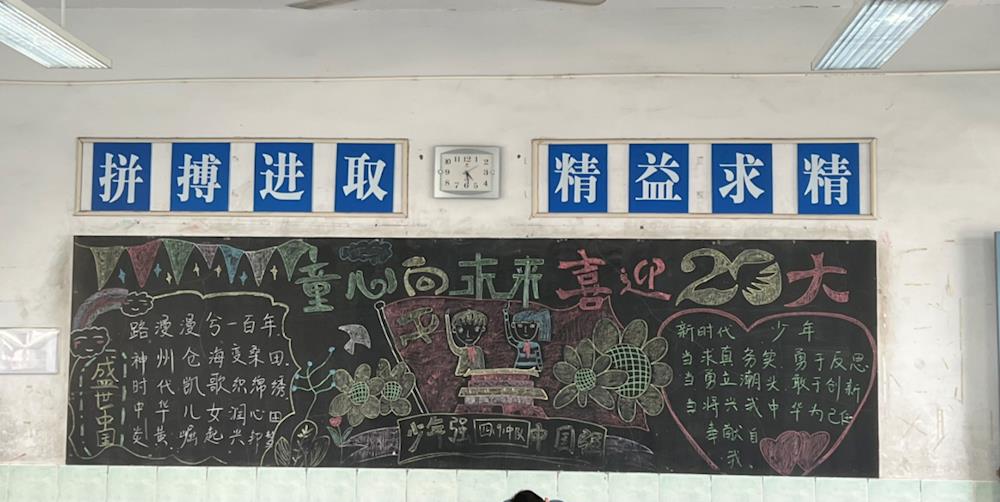 拼搏进取
精益求精
12 1 2 3 4 5 6 7 8 9 10 11
童心向未来 喜迎20大
盛世中国
路漫漫兮一百年
神州仓海变桑田
时代凯歌织绵绣
中华儿女润心田
炎黄崛起兴邦梦
少年强 四.4中队 中国强
新时代.少年
当求真务实 勇于反思
当勇立潮头 敢于创新
当将兴我中华为己任
奉献自我.